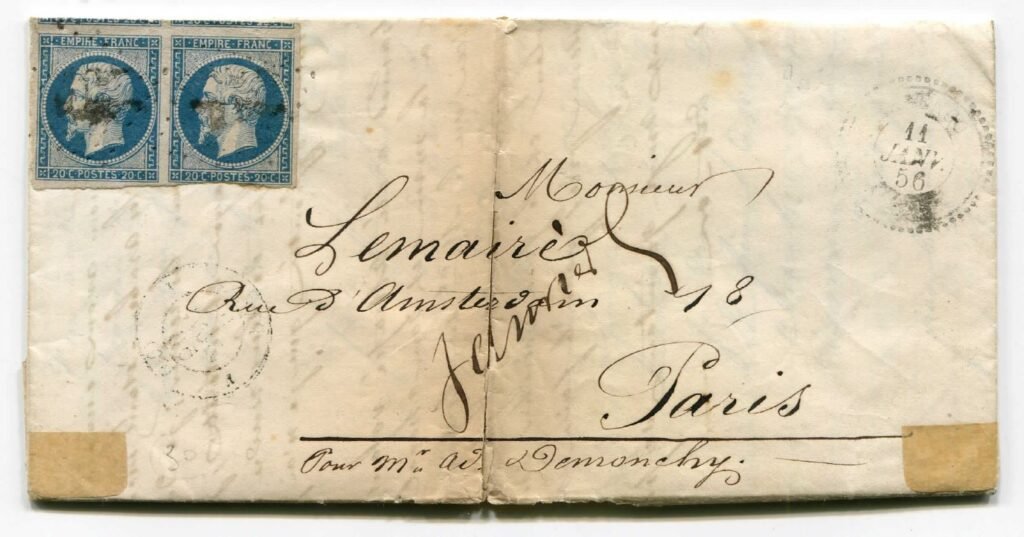 EMPIRE FRANC EMPIRE FRANC
20 C·POSTES·20 C 20 C·POSTES·20 C
11
JANV.
56
Monsieur
Lemaire
Rue d'Amsterdam 18
Janvier
Paris
Pour Mr. Ad. Demonchy.
30